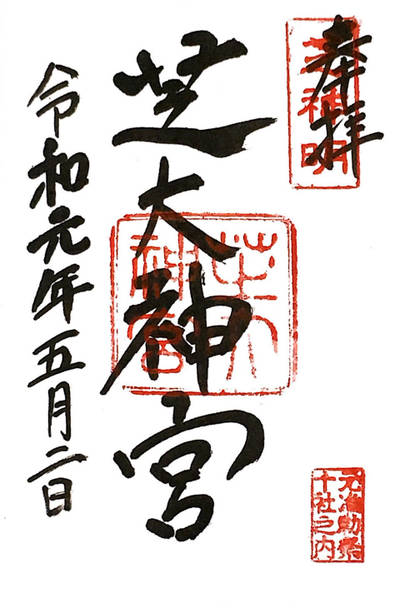 奉拝
芝神明
芝大神宮
芝大
神宮
令和元年五月二日
元准勅祭
十社之内